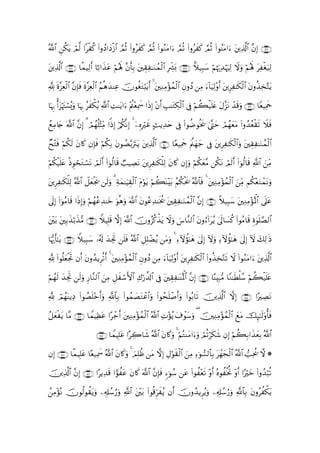 ﴿١٣٦﴾ إِنَّ ٱلَّذِينَ ءَامَنُوا۟ ثُمَّ كَفَرُوا۟ ثُمَّ ءَامَنُوا۟ ثُمَّ كَفَرُوا۟ ثُمَّ ٱزْدَادُوا۟ كُفْرًا لَّمْ يَكُنِ ٱللَّهُ
لِيَغْفِرَ لَهُمْ وَلَا لِيَهْدِيَهُمْ سَبِيلًۢا ﴿١٣٧﴾ بَشِّرِ ٱلْمُنَٰفِقِينَ بِأَنَّ لَهُمْ عَذَابًا أَلِيمًا ﴿١٣٨﴾ ٱلَّذِينَ
يَتَّخِذُونَ ٱلْكَٰفِرِينَ أَوْلِيَآءَ مِن دُونِ ٱلْمُؤْمِنِينَ ۚ أَيَبْتَغُونَ عِندَهُمُ ٱلْعِزَّةَ فَإِنَّ ٱلْعِزَّةَ لِلَّهِ
جَمِيعًا ﴿١٣٩﴾ وَقَدْ نَزَّلَ عَلَيْكُمْ فِى ٱلْكِتَٰبِ أَنْ إِذَا سَمِعْتُمْ ءَايَٰتِ ٱللَّهِ يُكْفَرُ بِهَا وَيُسْتَهْزَأُ بِهَا
فَلَا تَقْعُدُوا۟ مَعَهُمْ حَتَّىٰ يَخُوضُوا۟ فِى حَدِيثٍ غَيْرِهِۦٓ ۚ إِنَّكُمْ إِذًا مِّثْلُهُمْ ۗ إِنَّ ٱللَّهَ جَامِعُ
ٱلْمُنَٰفِقِينَ وَٱلْكَٰفِرِينَ فِى جَهَنَّمَ جَمِيعًا ﴿١٤٠﴾ ٱلَّذِينَ يَتَرَبَّصُونَ بِكُمْ فَإِن كَانَ لَكُمْ فَتْحٌ
مِّنَ ٱللَّهِ قَالُوٓا۟ أَلَمْ نَكُن مَّعَكُمْ وَإِن كَانَ لِلْكَٰفِرِينَ نَصِيبٌ قَالُوٓا۟ أَلَمْ نَسْتَحْوِذْ عَلَيْكُمْ
وَنَمْنَعْكُم مِّنَ ٱلْمُؤْمِنِينَ ۚ فَٱللَّهُ يَحْكُمُ بَيْنَكُمْ يَوْمَ ٱلْقِيَٰمَةِ ۗ وَلَن يَجْعَلَ ٱللَّهُ لِلْكَٰفِرِينَ
عَلَى ٱلْمُؤْمِنِينَ سَبِيلًا ﴿١٤١﴾ إِنَّ ٱلْمُنَٰفِقِينَ يُخَٰدِعُونَ ٱللَّهَ وَهُوَ خَٰدِعُهُمْ وَإِذَا قَامُوٓا۟ إِلَى
ٱلصَّلَوٰةِ قَامُوا۟ كُسَالَىٰ يُرَآءُونَ ٱلنَّاسَ وَلَا يَذْكُرُونَ ٱللَّهَ إِلَّا قَلِيلًا ﴿١٤٢﴾ مُّذَبْذَبِينَ بَيْنَ
ذَٰلِكَ لَآ إِلَىٰ هَٰٓؤُلَآءِ وَلَآ إِلَىٰ هَٰٓؤُلَآءِ ۚ وَمَن يُضْلِلِ ٱللَّهُ فَلَن تَجِدَ لَهُۥ سَبِيلًا ﴿١٤٣﴾ يَٰٓأَيُّهَا
ٱلَّذِينَ ءَامَنُوا۟ لَا تَتَّخِذُوا۟ ٱلْكَٰفِرِينَ أَوْلِيَآءَ مِن دُونِ ٱلْمُؤْمِنِينَ ۚ أَتُرِيدُونَ أَن تَجْعَلُوا۟ لِلَّهِ
عَلَيْكُمْ سُلْطَٰنًا مُّبِينًا ﴿١٤٤﴾ إِنَّ ٱلْمُنَٰفِقِينَ فِى ٱلدَّرْكِ ٱلْأَسْفَلِ مِنَ ٱلنَّارِ وَلَن تَجِدَ لَهُمْ
نَصِيرًا ﴿١٤٥﴾ إِلَّا ٱلَّذِينَ تَابُوا۟ وَأَصْلَحُوا۟ وَٱعْتَصَمُوا۟ بِٱللَّهِ وَأَخْلَصُوا۟ دِينَهُمْ لِلَّهِ
فَأُو۟لَٰٓئِكَ مَعَ ٱلْمُؤْمِنِينَ ۖ وَسَوْفَ يُؤْتِ ٱللَّهُ ٱلْمُؤْمِنِينَ أَجْرًا عَظِيمًا ﴿١٤٦﴾ مَّا يَفْعَلُ
ٱللَّهُ بِعَذَابِكُمْ إِن شَكَرْتُمْ وَءَامَنتُمْ ۚ وَكَانَ ٱللَّهُ شَاكِرًا عَلِيمًا ﴿١٤٧﴾
* لَّا يُحِبُّ ٱللَّهُ ٱلْجَهْرَ بِٱلسُّوٓءِ مِنَ ٱلْقَوْلِ إِلَّا مَن ظُلِمَ ۚ وَكَانَ ٱللَّهُ سَمِيعًا عَلِيمًا ﴿١٤٨﴾ إِن
تُبْدُوا۟ خَيْرًا أَوْ تُخْفُوهُ أَوْ تَعْفُوا۟ عَن سُوٓءٍ فَإِنَّ ٱللَّهَ كَانَ عَفُوًّا قَدِيرًا ﴿١٤٩﴾ إِنَّ ٱلَّذِينَ
يَكْفُرُونَ بِٱللَّهِ وَرُسُلِهِۦ وَيُرِيدُونَ أَن يُفَرِّقُوا۟ بَيْنَ ٱللَّهِ وَرُسُلِهِۦ وَيَقُولُونَ نُؤْمِنُ